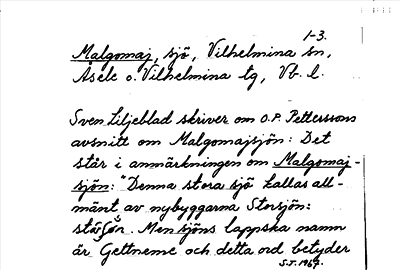 1-3.
Malgomaj, sjö, Vilhelmina sn,
Åsele o. Vilhelmina tg, Vb. l.
Sven Liljeblad skriver om O.P. Petterssons
avsnitt om Malgomajsjön: Det
står i anmärkningen om Malgomaj-
sjön: "Denna stora sjö kallas all-
mänt av nybyggarna Storsjön:
. Men sjöns lappska namn
är Gettneme och detta ord betyder
S.J. 1967.